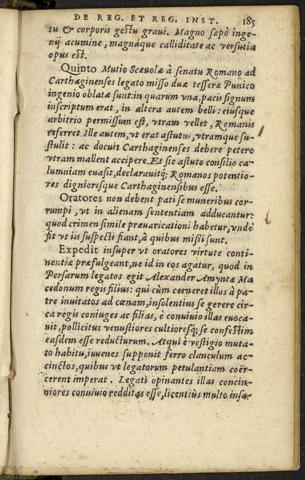 DE REG. ET REG. INST. 185
tu & corporis gestu graui. Magno sæpè inge-
nij acumine, magnáque calliditate ac versutia
opus est.
Quinto Mutio Scæuolæ à senatu Romano ad
Carthaginenses legato misso duæ tesseræ Punico
ingenio oblatæ sunt in quarum vna, pacis signum
inscriptum erat, in altera autem belli: eiusque
arbitrio permissum est, vtram vellet, Romanis
referret. Ille autem, vt erat astutus, vtramque su-
stulit: ac docuit Carthaginenses debere petere
vtram mallent accipere. Et sic astuto consilio ca-
lumniam euasit, declarauitq; Romanos potentio-
res dignioresque Carthaginensibus esse.
Oratores non debent pati se muneribus cor-
rumpi, vt in alienam sententiam adducantur:
quod crimen simile præuaricationi habetur, vnde
fit vt iis suspecti fiant, à quibus missi sunt.
Expedit insuper vt oratores virtute conti-
nentiæ præfulgeant, ne id in eos agatur, quod in
Persarum legatos egit Alexander Amyntæ Ma
cedonum regis filius: qui cùm cerneret illos à pa-
tre inuitatos ad cœnam, insolentius se gerere cir-
ca regis coniuges ac filias, è conuiuio illas euoca-
uit, pollicitus venustiores cultioresq; se confestim
easdem esse reducturum. Atqui è vestigio muta-
to habitu, iuuenes supponit ferro clanculum ac-
cinctos, quibus vt legatorum petulantiam coër-
cerent imperat. Legati opinantes illas concin-
niores conuiuio redditas esse, licentiùs multo insa-